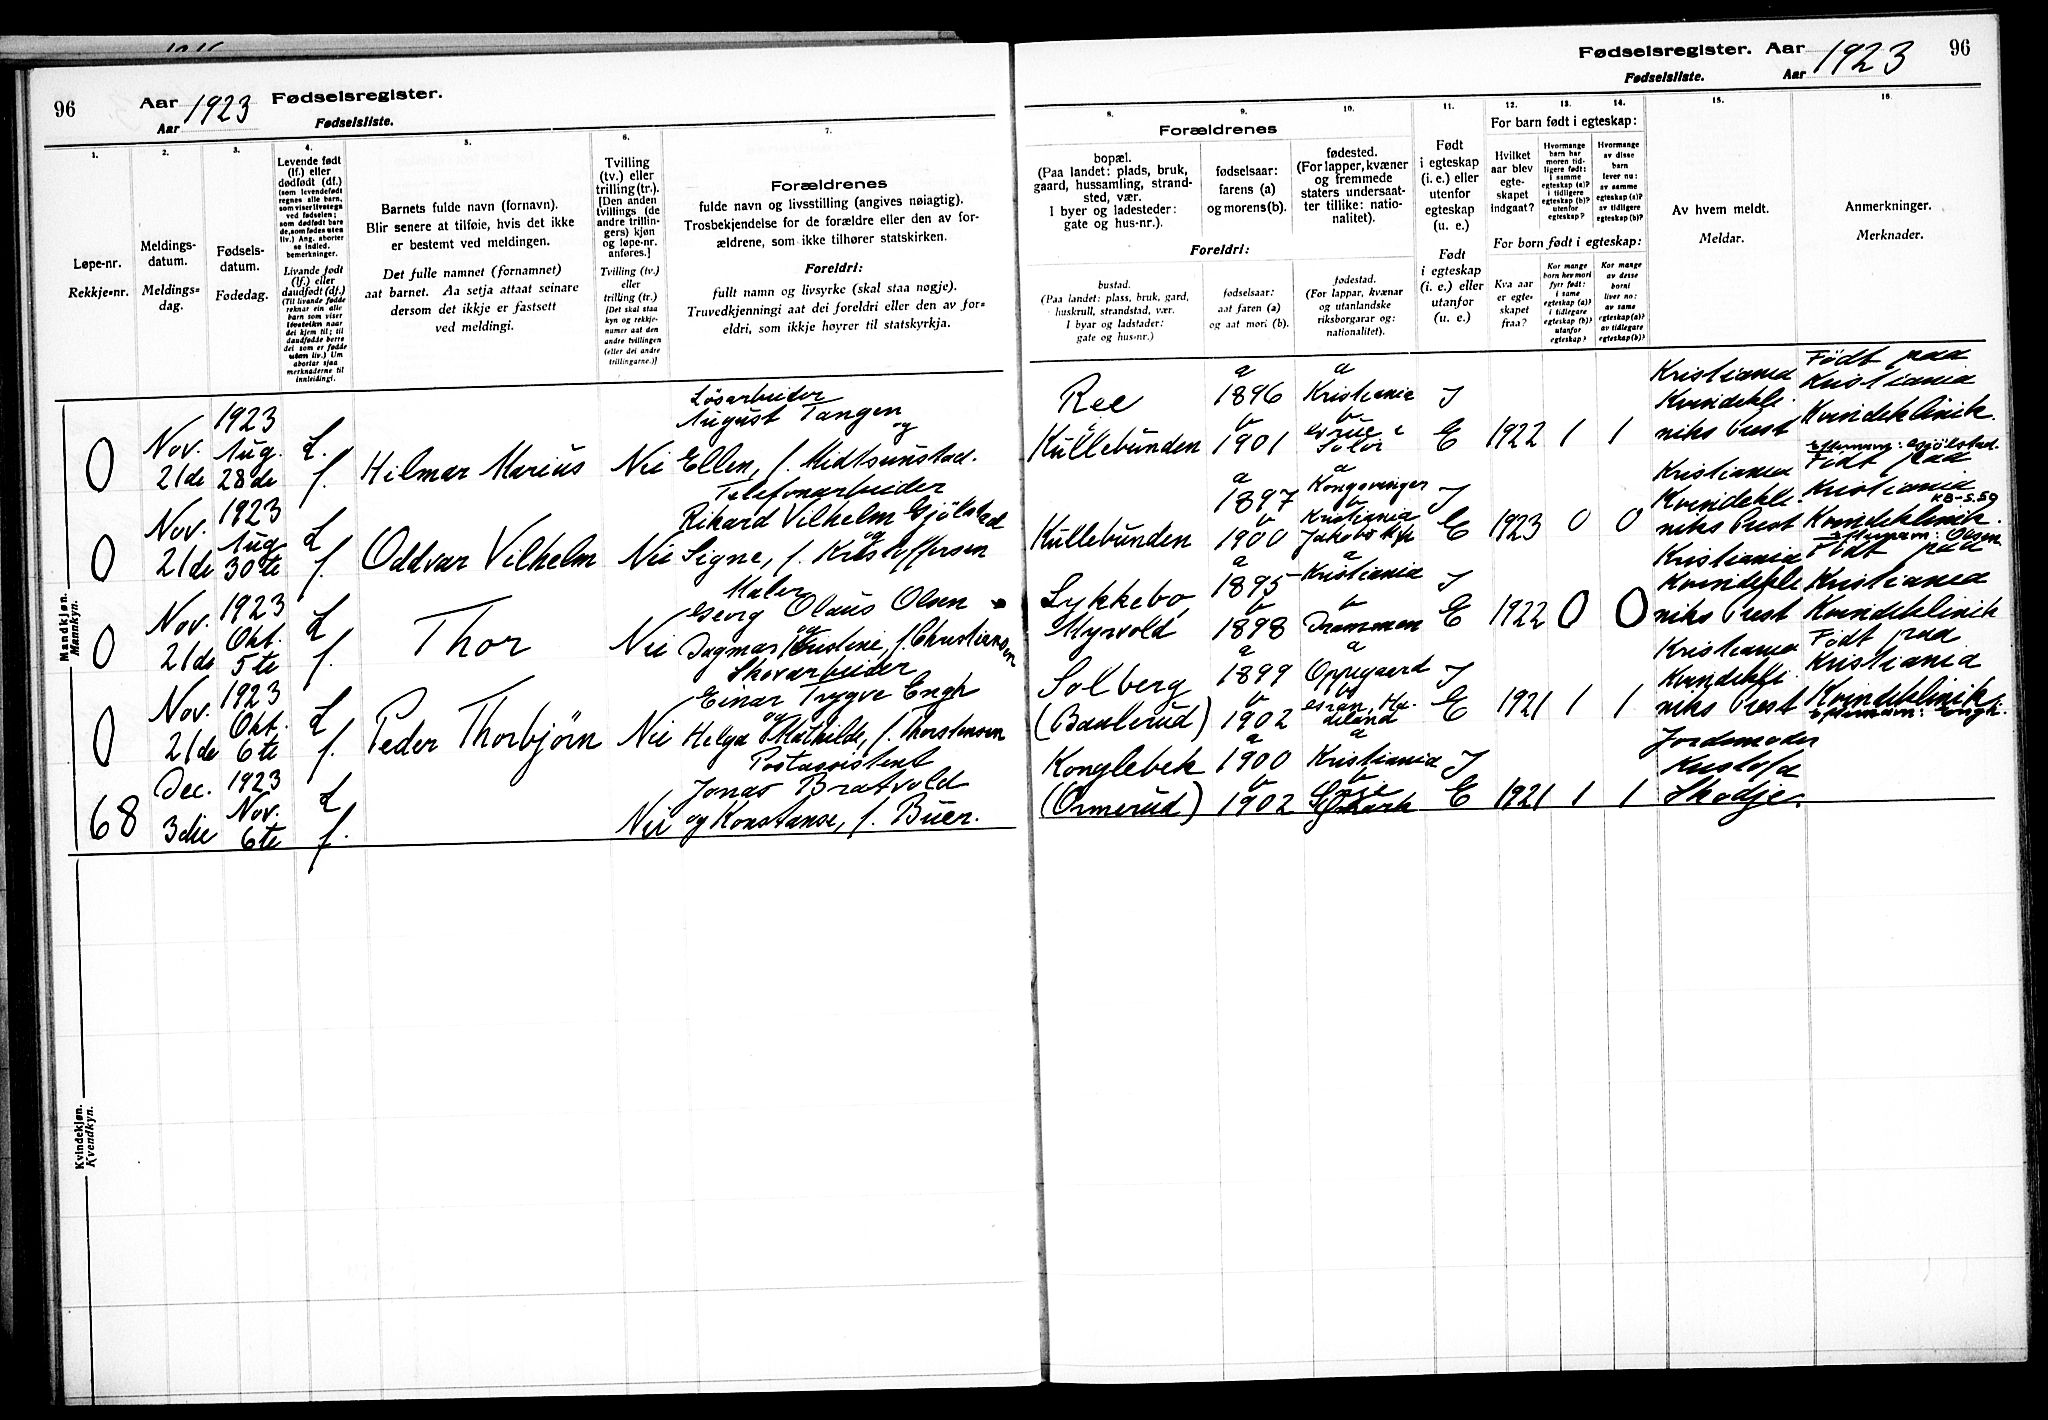 96
Aar 1923 Fødselsregister.
Aar Fødselsliste.
1.
2.
3.
4.
5.
6.
7.
Løpe-nr.
Rekkje=nr.
Meldings-
datum.
Meldings=
dag.
Fødsels-
datum.
Fødedag.
Levende født
(lf.) eller
dødfødt (df.)
(som levendefødt
regnes alle barn,
som viser livstegn
ved fødselen;
som dødfødt bare
de, som fødes uten
liv.) Ang. aborter
se indled.
bemerkninger.
Livande født
(lf.) eller
daudfødt (df.)
(Til livande fødde
reknar ein alle
born som viser
livsteikn naar
dei kjem til; til
daudfødde berre
dei som er fødde
utan liv.) Um
abortar sjaa
merknaderne til
innleidingi.
Barnets fulde navn (fornavn).
Blir senere at tilføie, hvis det ikke
er bestemt ved meldingen.
Det fulle namnet (fornamnet)
aat barnet. Aa setja attaat seinare
dersom det ikkje er fastsett
ved meldingi.
Tvilling
(tv.) eller
trilling (tr.)
[Den anden
tvillings (de
andre trillin-
gers) kjøn
og løpe-nr.
anføres.]
Tvilling (tv.)
eller
trilling (tr.)
[Det skal staa
kyn og rekkje-
numer aat den
andre tvillingen
(eller dei andre
trillingarne.)]
Forældrenes
fulde navn og livsstilling (angives nøiagtig).
Trosbekjendelse for de forældre eller den av for-
ældrene, som ikke tilhører statskirken.
Foreldri:
fullt namn og livsyrke (skal staa nøgje).
Truvedkjenningi aat dei foreldri eller den av for=
eldri, som ikkje høyrer til statskyrkja.
Mandkjøn.
Mannkyn.
0
Nov.
21de
1923
Aug.
28de
L.
f.
Hilmar Marius
Nei
Løsarbeider
August Tangen
og
Ellen, f. Midtsunstad.
0
Nov.
21de
1923
Aug
30te
L
f.
Oddvar Vilhelm
Nei
Telefonarbeider
Rikard Vilhelm Gjølstad
og
Signe, f. Kristoffersen
0
Nov.
21de
1923
Okt.
5te
L
f.
Thor
Nei
Maler
Georg Olaus Olsen
og
Dagmar Kristine, f. Christiansen
0
Nov.
21de
1923
Okt.
6te
L
f.
Peder Thorbjørn
Nei
Skovarbeider
Einar Trygve Engh
og
Helga Mathilde, f. Thorstensen
68
Dec.
3die
1923
Nov.
6te
L
f.
Nei
Postassistent
Jonas Bratvold
og Konstanse, f. Buer.
Kvindekjøn.
Kvendkyn.
Fødselsregister. Aar 1923 96
Fødselsliste. Aar
8.
9.
10.
11.
12.
13.
14.
15.
16.
Forældrenes
bopæl.
(Paa landet: plads, bruk,
gaard, hussamling, strand-
sted, vær.
I byer og ladesteder:
gate og hus-nr.).
fødselsaar:
farens (a)
og morens (b).
fødested.
(For lapper, kvæner
og fremmede
staters undersaat-
ter tillike: natio-
nalitet).
Foreldri:
bustad.
(Paa landet: plass, bruk, gard,
huskrull, strandstad, vær.
I byar og ladstader:
gate og hus-nr.)
fødselsaar:
aat faren (a)
og aat mori (b).
fødestad.
(For lappar, kvænar
og utanlandske
riksborgarar og:
nationalitet).
Født
i egteskap
(i. e.) eller
utenfor
egteskap
(u. e.)
Født
i egteskap
(i. e.) eller
utanfor
(u. e.)
For barn født i egteskap:
Hvilket
aar blev
egte-
skapet
indgaat?
Hvormange
barn har
moren tid-
ligere født:
i samme
egteskap (a)?
i tidligere
egteskap (b)?
utenfor
egteskap?
Hvormange
av disse
barn
lever nu:
av samme
egteskap (a)?
av tidligere
egteskap (b)?
For born født i egteskap:
Kva aar
er egte-
skapet
fraa?
Kor mange
born hev mori
fyrr født:
i same
egteskap (a)?
i tidlegare
egteskap (b)?
utanfor
egteskap?
Kor mange
av desse
borni
liver no:
av same
egteskap (a)?
av tidlegare
egteskap (b)?
Av hvem meldt.
Meldar.
Anmerkninger.
Merknader.
Ree
Kullebunden
a
1896
b
1901
a
Kristiania
b
Grue i
Solør
I
E
1922
1
1
Kristiania
Kvindekli
niks Prest
Født paa
Kristiania
Kvindeklinik.
Efternavn: Gjølstad.
Kullebunden
a
1897
b
1900
a
Kongsvinger
b
Kristiania
Jakobs K
I
E
1923
0
0
Kristiania
Kvindekli
niks Prest
Født paa
Kristiania
KB-S.59
Kvindeklinik.
Efternavn: Olsen
Lykkebo,
Myrvold
a
1895
b
1898
a
Kristiania
b
Drammen
I
E
1922
0
0
Kristiania
Kvindekli
niks Prest
Født paa
Kristiania
Kvindeklinik
Solberg
(Baulerud)
a
1899
b
1902
a
Oppegaard
b
Gran, Ha-
deland
I
E
1921
1
1
Kristiania
Kvindekli.
niks Prest
Født paa
Kristiania
Kvindeklinik.
Efternavn: Engh.
Konglebek
(Ormerud)
a
1900
b
1902
a
Kristiania
b
I
E
1921
1
1
Jordemoder
Kustosa
Skodje.